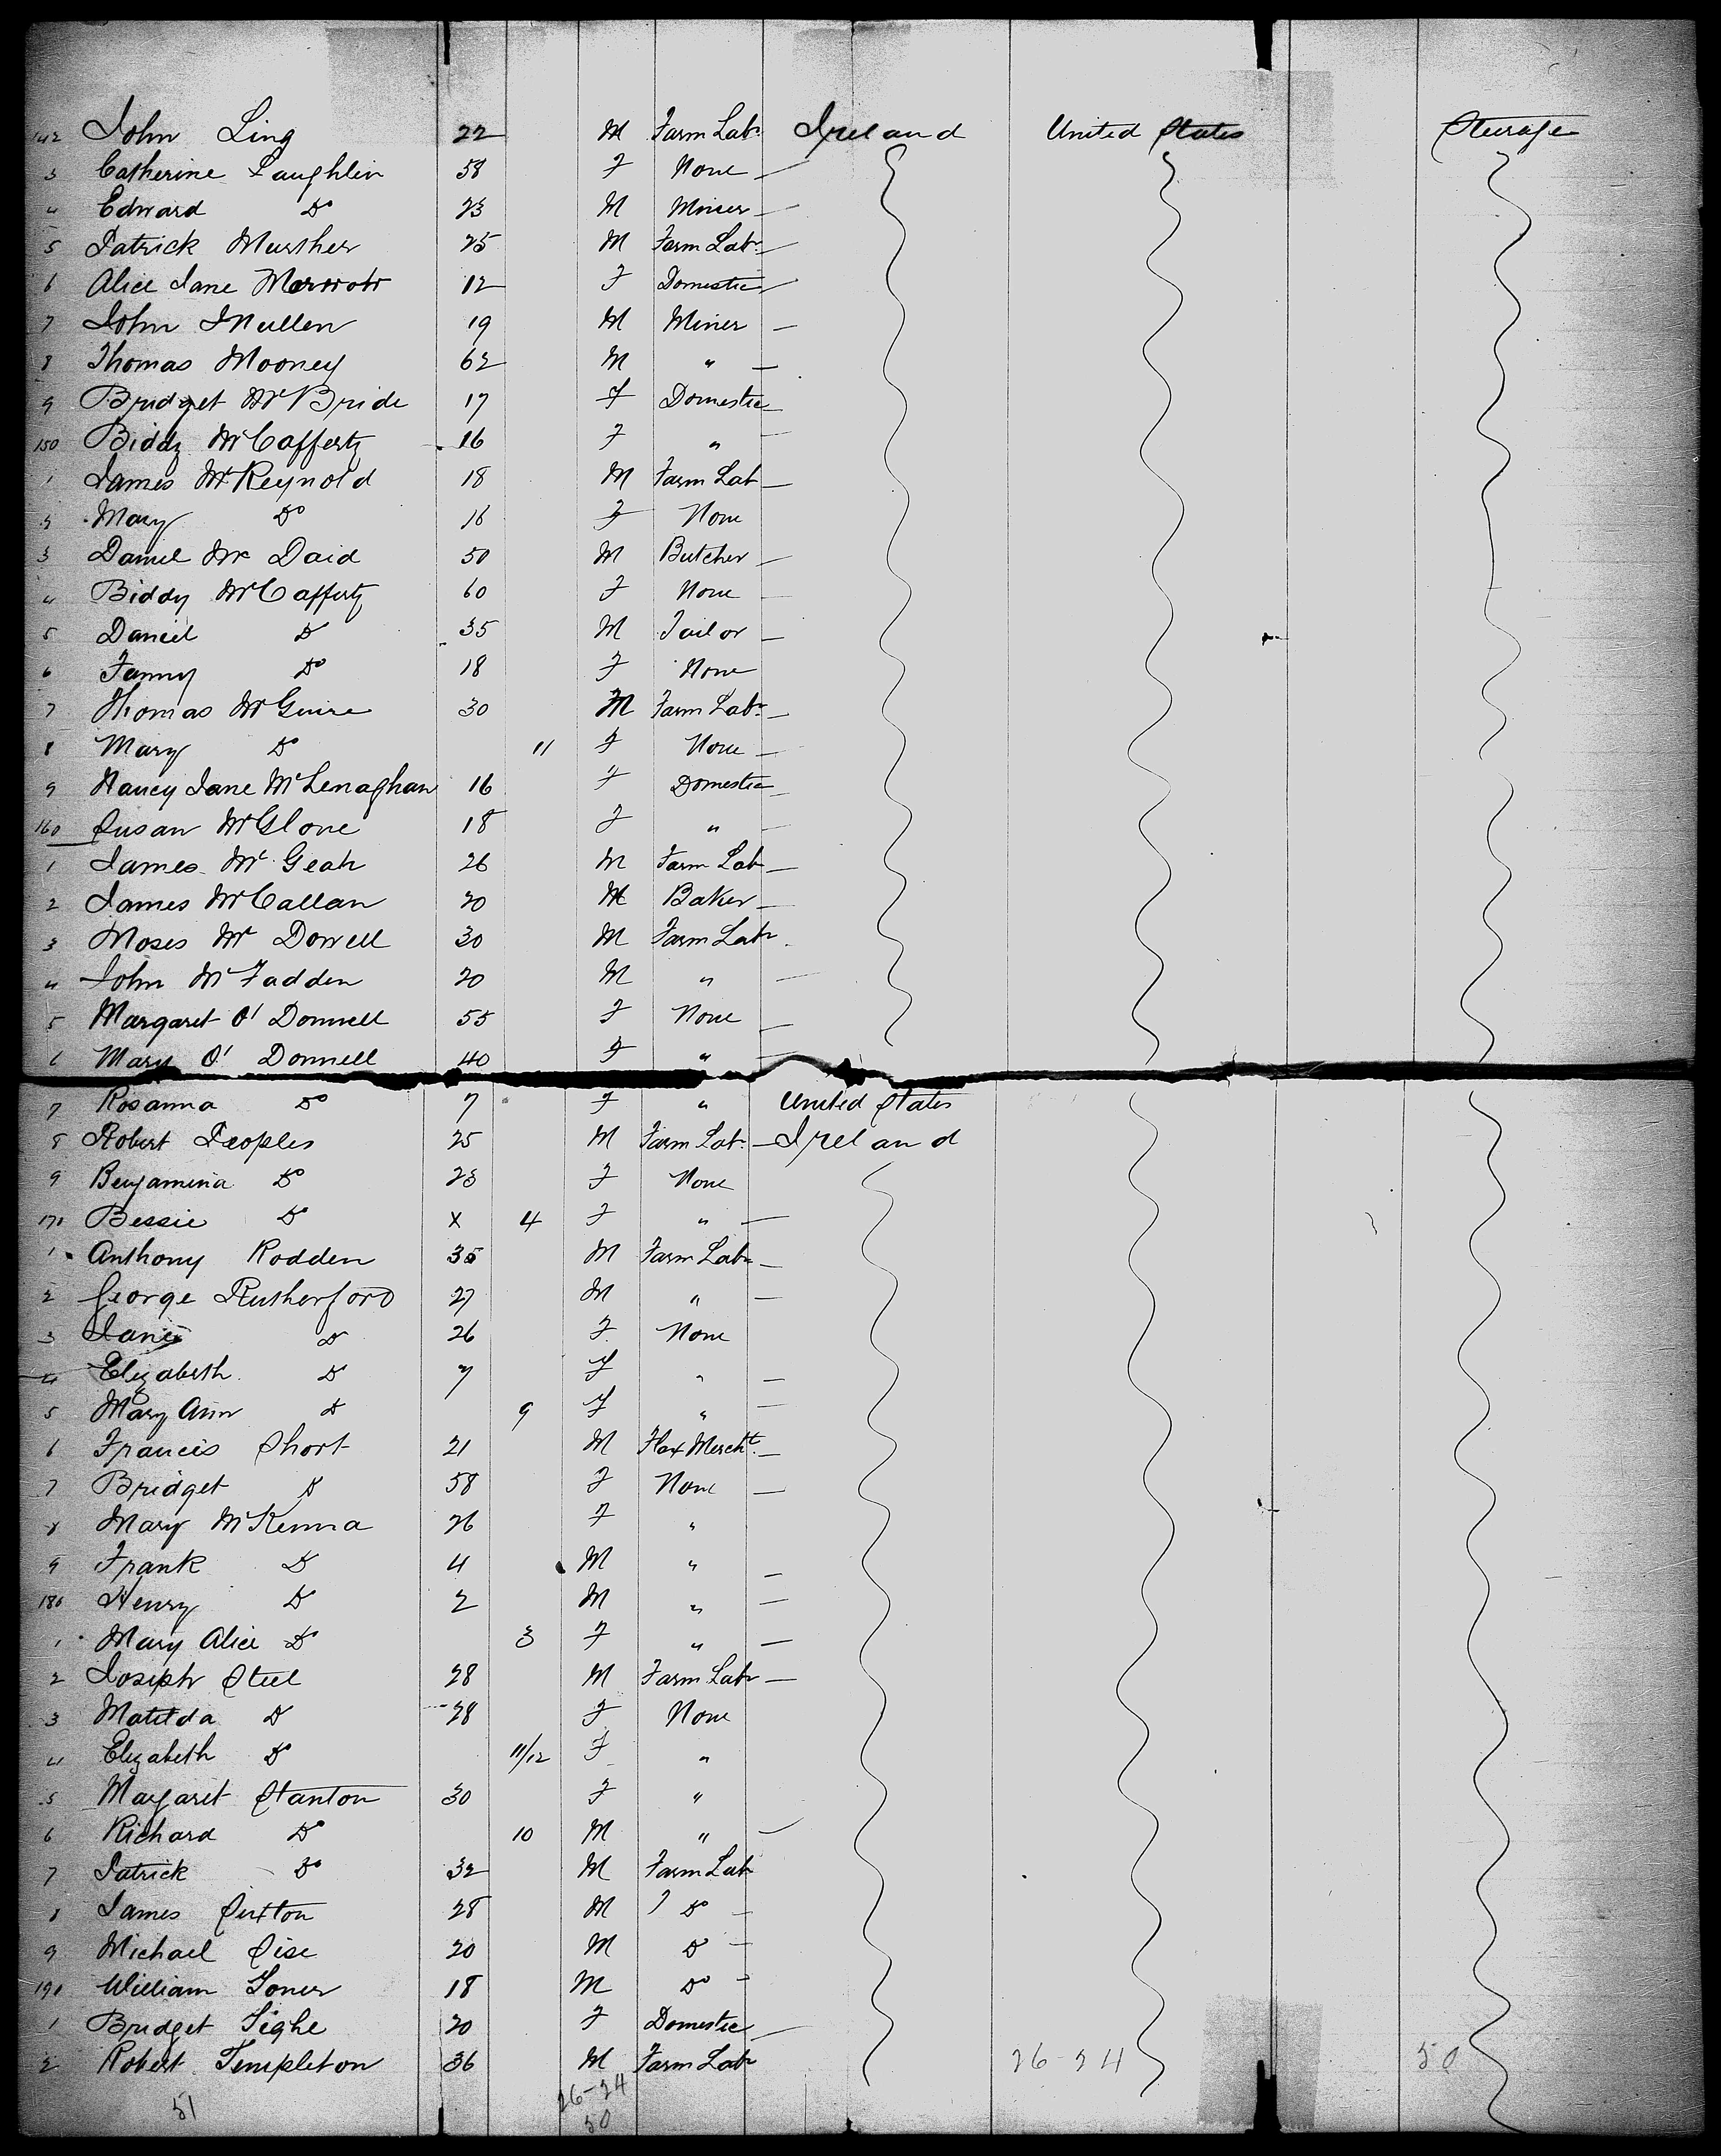 142 John Ling 22 M Farm Labr Ireland United States Steerage
3 Catherine Laughlin 58 F None
4 Edward Do 23 M Miner
5 Patrick Murther 25 M Farm Labr
6 Alice Jane Morrow 12 F Domestic
7 John Mullen 19 M Miner
8 Thomas Mooney 62 M "
9 Bridget McBride 17 F Domestic
150 Biddy McCafferty 16 F "
1 James McReynold 18 M Farm Lab
2 Mary Do 16 F None
3 Daniel Mc Daid 50 M Butcher
4 Biddy McCafferty 60 F None
5 Daniel Do 35 M Tailor
6 Fanny Do 18 F None
7 Thomas McGuire 30 M Farm Labr
8 Mary Do 11 F None
9 Nancy Jane McLenaghan 16 F Domestic
160 Susan McGlone 18 F "
1 James Mc Geah 26 M Farm Lab
2 James McCallan 20 M Baker
3 Moses Mc Dowell 30 M Farm Labr
4 John McFadden 20 M "
5 Margaret O' Donnell 55 F None
6 Mary O' Donnell 40 F "
7 Rosanna Do 7 F " United States
8 Robert Peoples 25 M Farm Lab. Ireland
9 Benjamina Do 23 F None
170 Bessie Do x 4 F "
1 Anthony Rodden 35 M Farm Labr
2 George Rutherford 27 M "
3 Jane Do 26 F None
4 Elizabeth Do 7 F "
5 Mary Ann Do 9 F "
6 Francis Short 21 M Flax Mercht.
7 Bridget Do 58 F None
8 Mary McKenna 26 F "
9 Frank Do 4 M "
180 Henry Do 2 M "
1 Mary Alice Do 3 F "
2 Joseph Steel 28 M Farm Labr
3 Matilda Do 28 F None
4 Elizabeth Do 11/12 F "
5 Margaret Stanton 30 F "
6 Richard Do 10 M "
7 Patrick Do 32 M Farm Lab
8 James Suxton 28 M Do
9 Michael Sise 20 M Do
190 William Toner 18 M Do
1 Bridget Tighe 20 F Domestic
2 Robert Templeton 36 M Farm Labr 26-24 50
51 26-24
50